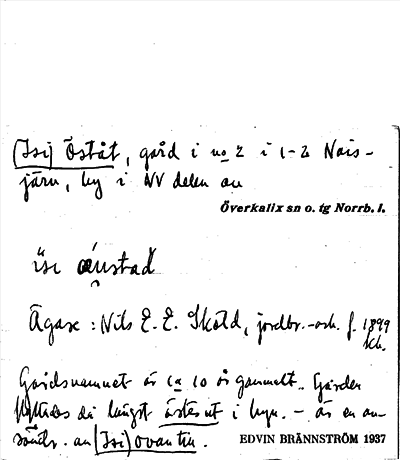 (Isi) Öståt, gård i no 2 i 1-2 Nais-
järv, by i NV delen av
Överkalix sn o. tg Norrb. l.
Ägare: Nils E. E. Sköld, jordbr.- och f. 1899
Gårdsnamnet är ca 10 år gammalt. Gården
flyttades då längst österut i byn. - är en av-
söndr. av (Isi) ovantill.
EDVIN BRÄNNSTRÖM 1937